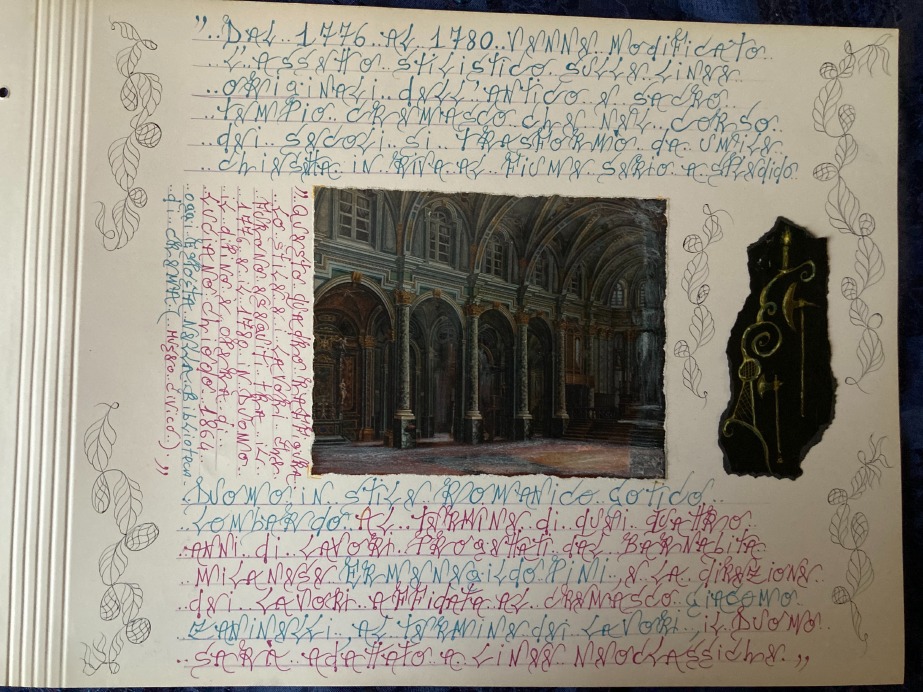 „..DAL..1776..AL 1780..VENNE..Modificato..
..L'ASSETTO STILISTICO SULLE LINEE..
..ORIGINALI..dELL'ANTICO E SACRO..
..TEMPIO..CREMASCO..chE..NEL..CORSO..
..dEI..SECOLI..SI..TRASFORMÒ..dA UMILE..
..chiESETTA IN RIVA AL FIUME SERIO..A
„QUESTO QUADRO RAFFIGURA
..LO STILE E..LAVORI chE
FURONO ESEGUITI TRA IL
1776 E IL 1780 IN DUOMO.
IL E OPERA dI..
LUCIANO 1864
OGGI NELLA BIBLIOTECA.
dI..CREMA (..MUSEO CIVICO)..„
DUOMO IN STILE ROMANICO GOTICO..
LOMBARDO AL TERMINE dI QUEI QUATTRO..
ANNI dI LAVORI PROGETTATI DAL BARNABITA..
MILANESE ERMENEGILDO PINI, E LA dIREZIONE..
dEI LAVORI AFFIDATA AL CREMASCO GIACOMO..
ZANINELLI..AL TERMINE dEI LAVORI..IL DUOMO..
SARÀ AdATTATO A LINEE NEOCLASSICHE..„